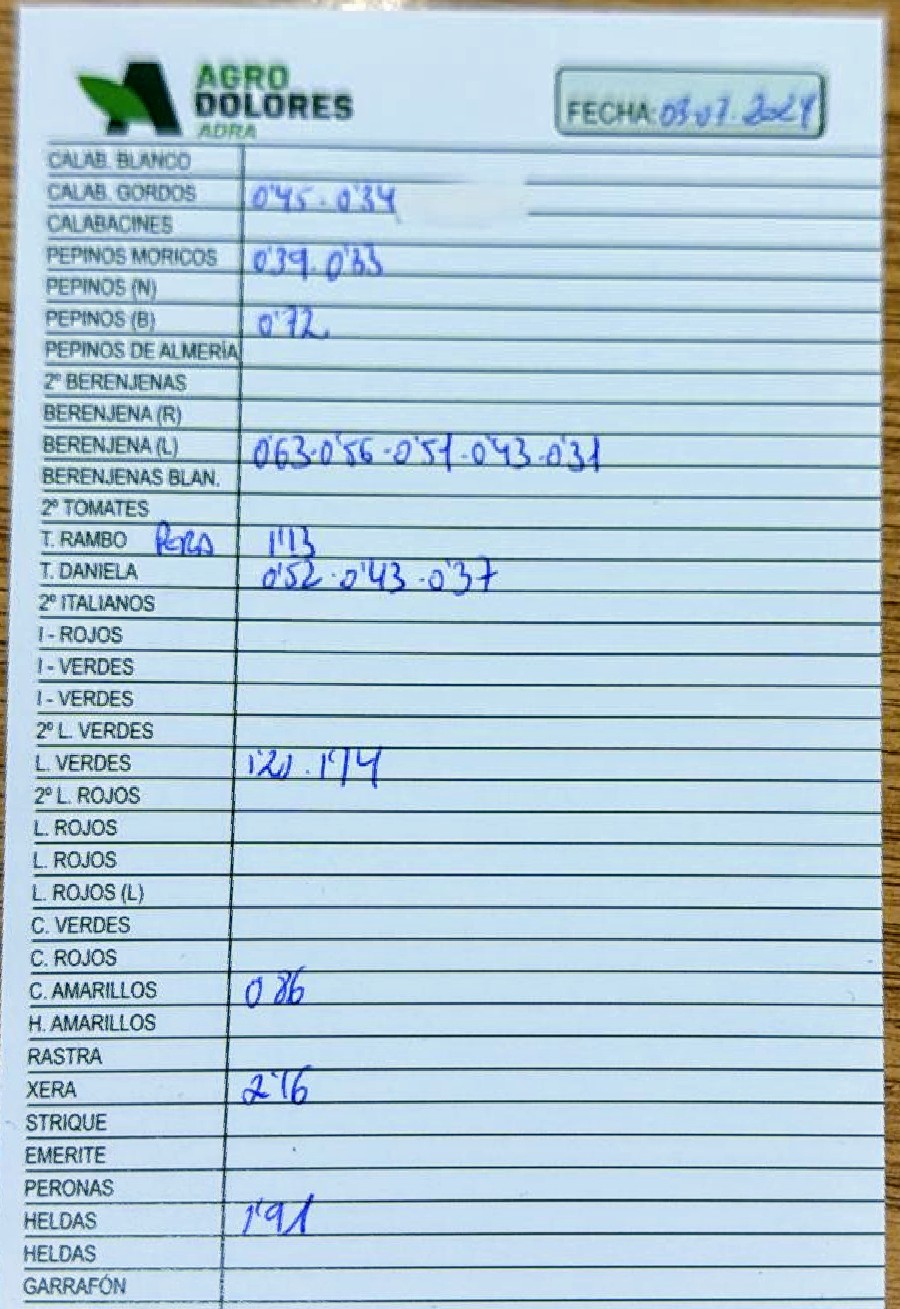 AGRO
DOLORES
ADRA
FECHA: 03.07.2024
CALAB. BLANCO
CALAB. GORDOS 0'45 - 0'34
CALABACINES
PEPINOS MORICOS 0'39 - 0'33
PEPINOS (N)
PEPINOS (B) 0'72
PEPINOS DE ALMERÍA
2º BERENJENAS
BERENJENA (R)
BERENJENA (L) 0'63-0'56-0'51-0'43-0'31
BERENJENAS BLAN.
2º TOMATES
T. RAMBO PERA 1'13
T. DANIELA 0'52-0'43-0'37
2º ITALIANOS
I - ROJOS
I - VERDES
I - VERDES
2º L. VERDES
L. VERDES 1'21 - 1'14
2º L. ROJOS
L. ROJOS
L. ROJOS
L. ROJOS (L)
C. VERDES
C. ROJOS
C. AMARILLOS 0'86
H. AMARILLOS
RASTRA
XERA 2'16
STRIQUE
EMERITE
PERONAS
HELDAS 1'91
HELDAS
GARRAFÓN